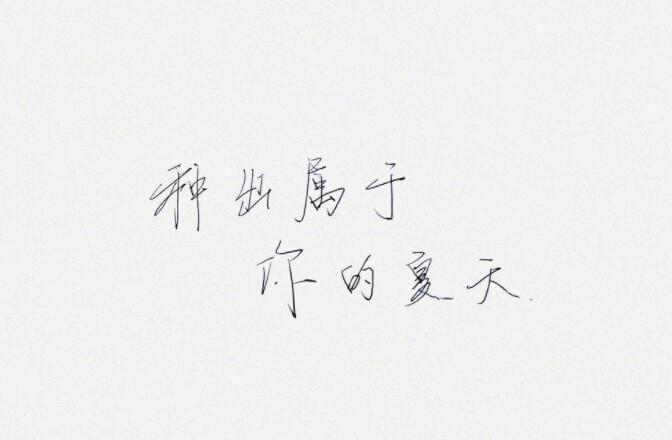 种出属于
你的夏天.